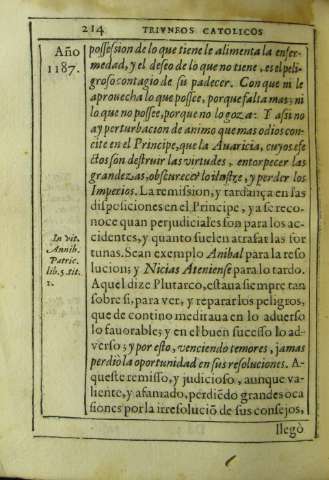 214 TRIVNFOS CATOLICOS
Año
1187.
possession de lo que tiene le alimenta la enfer-
medad, y el deseo de lo que no tiene, es el peli-
groso contagio de su padecer. Con que ni le
aprouecha lo que possee, porque falta mas; ni
lo que no possee, porque no lo goza. Y assi no
ay perturbacion de animo que mas odios con-
cite en el Principe, que la Auaricia, cuyos efe
ctos son destruir las virtudes, entorpecer las
grandezas, obscurecer lo ilustre, y perder los
Imperios. La remission, y tardança en las
disposiciones en el Principe, ya se reco-
noce quan perjudiciales son para los ac-
cidentes, y quanto suelen atrasar las for
tunas. Sean exemplo Anibal para la reso
lucion; y Nicias Ateniense para lo tardo.
Aquel dize Plutarco, estaua siempre tan
sobre si, para ver, y reparar los peligros,
que de contino meditaua en lo aduerso
lo fauorable; y en el buen sucesso lo ad-
verso; y por esto, venciendo temores, jamas
perdiò la oportunidad en sus resoluciones. A-
queste remisso, y judicioso, aunque va-
liente, y afamado, perdiẽdo grandes oca
siones por la irresoluciõ de sus consejos,
llegò
In vit.
Annib.
Patric.
lib. 5. tit.
2.